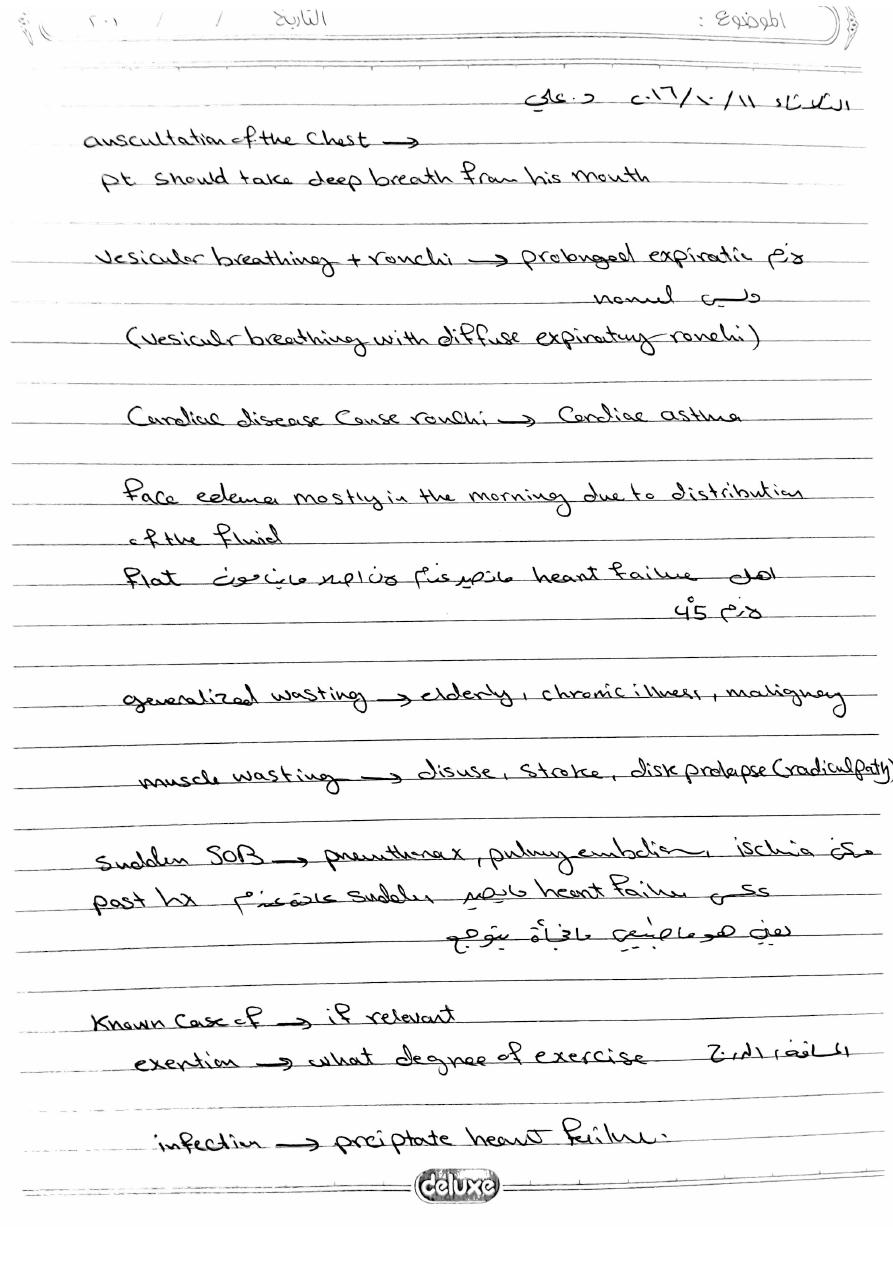 الموضوع : التاريخ / / ٢٠١
الثلاثاء ١١/١٠/٢٠١٦ د.علي
auscultation of the Chest →
pt. should take deep breath from his mouth
vesicular breathing + ronchi → prolonged expiratio لازم
وليس normal
(vesicular breathing with diffuse expiratory ronchi)
Cardiac disease Cause ronchi → Cardiac asthma
face edema mostly in the morning due to distribution
of the fluid
heart failure ماتصير عندهم لان اصلا flat
لازم 45°
generalized wasting → elderly, chronic illness, malignancy
muscle wasting → disuse, stroke, disk prolapse (radiculpathy)
sudden SOB → pneuthorax, pulmry embolism, ischia ممكن
heart failure مايصير sudden عادة عندهم past hx
هو فجأة
Known case of → if relevant
exertion → what degree of exercise المسافة، الدرج
infection → preciptate heart failure.
deluxe